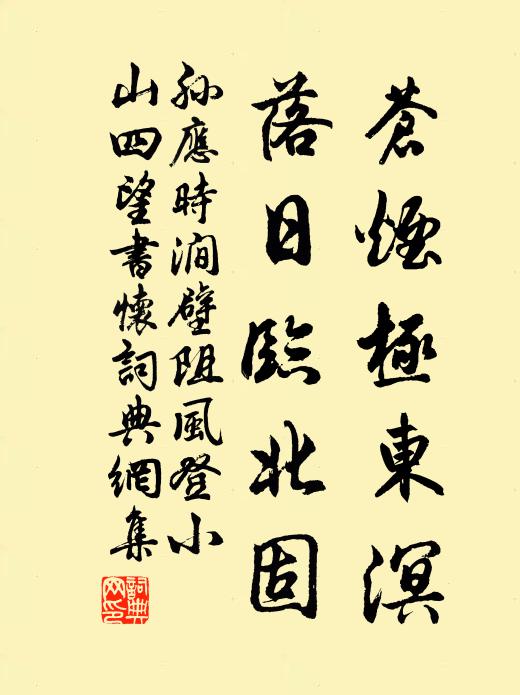 蒼煙極東溟
落日臨北固
孙應時澗壁阻風登小
山四望書懷詞典網集